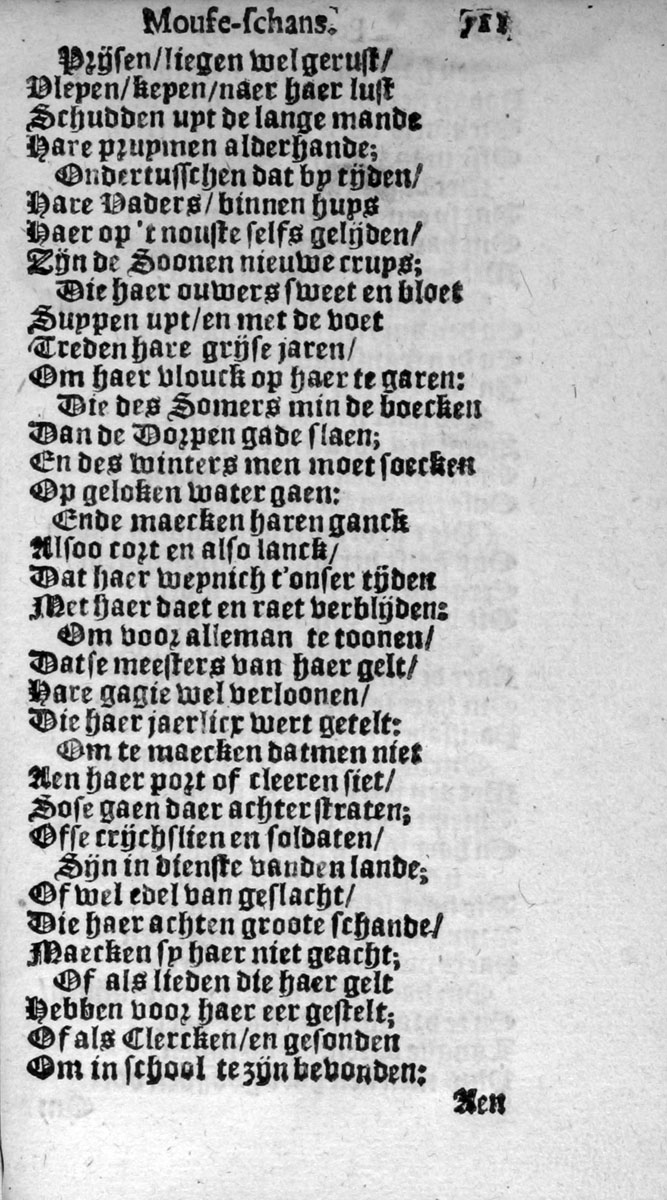 Mouse-schans. 711
Prijsen/liegen wel gerust/
Vleyen/keyen/naer haer lust
Schudden uyt de lange mande
Hare pruymen alderhande;
Ondertusschen dat by tijden/
Hare Vaders/binnen huys
Haer op 't nouste selfs gelijden/
Zijn de Soonen nieuwe cruys;
Die haer ouwers sweet en bloet
Suypen uyt/en met de voet
Treden hare grijse jaren/
Om haer vlouck op haer te garen:
Die des Somers min de boecken
Dan de Dorpen gade slaen;
En des winters men moet soecken
Op geloken water gaen:
Ende maecken haren ganck
Alsoo cort en also lanck/
Dat haer weynich t'onser tijden
Met haer daet en raet verblijden:
Om voor alleman te toonen/
Datse meesters van haer gelt/
Hare gagie wel verloonen/
Die haer jaerlicx wert getelt:
Om te maecken datmen niet
Aen haer port of cleeren siet/
Sose gaen daer achter straten;
Ofse crijchslien en soldaten/
Sijn in dienste vanden lande;
Of wel edel van geslacht/
Die haer achten groote schande/
Maecken sy haer niet geacht;
Of als lieden die haer gelt
Hebben voor haer eer gestelt;
Of als Clercken/en gesonden
Om in school te zijn bevonden:
Aen